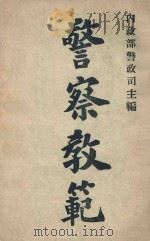 內政部警政司主編
警察教範